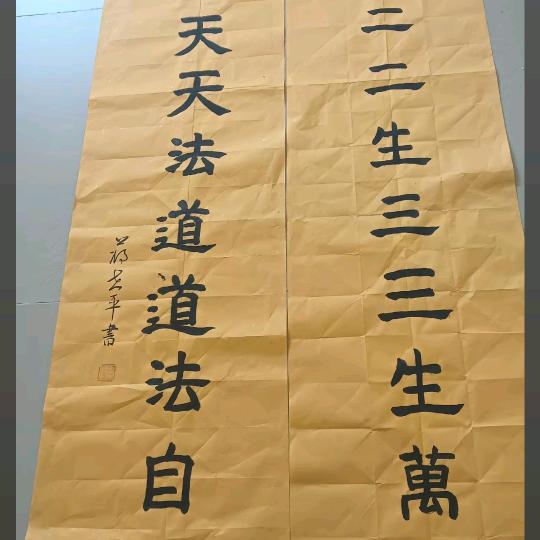 二二生三三生萬
天天法道道法自
平書